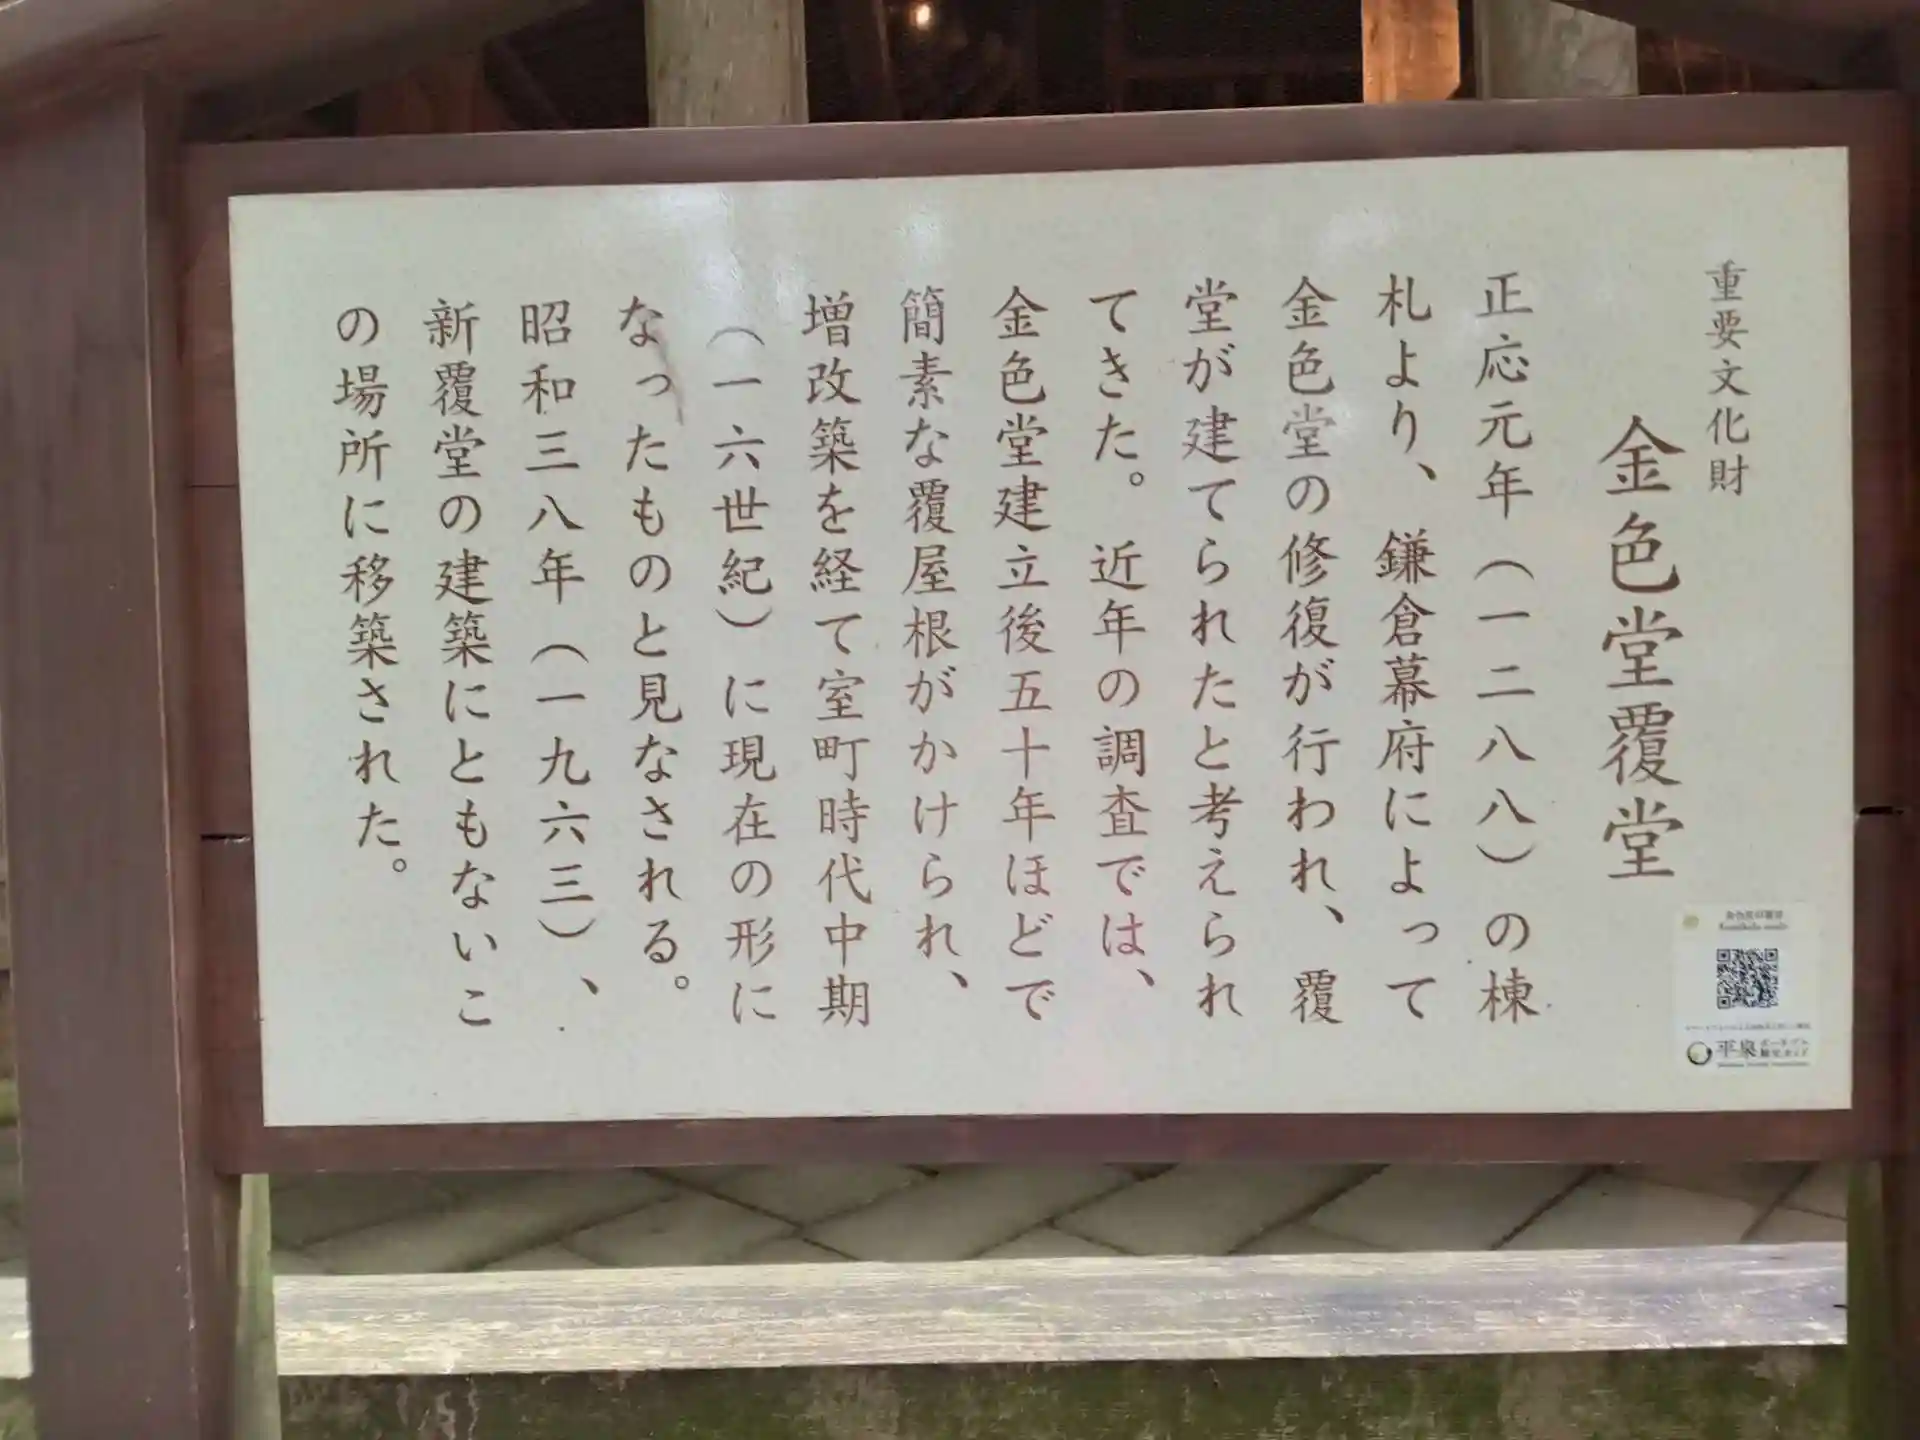 重要文化財
金色堂覆堂
正応元年（一二八八）の棟
札より、鎌倉幕府によって
金色堂の修復が行われ、覆
堂が建てられたと考えられ
てきた。近年の調査では、
金色堂建立後五十年ほどで
簡素な覆屋根がかけられ、
増改築を経て室町時代中期
（一六世紀）に現在の形に
なったものと見なされる。
昭和三八年（一九六三）、
新覆堂の建築にともないこ
の場所に移築された。
平泉